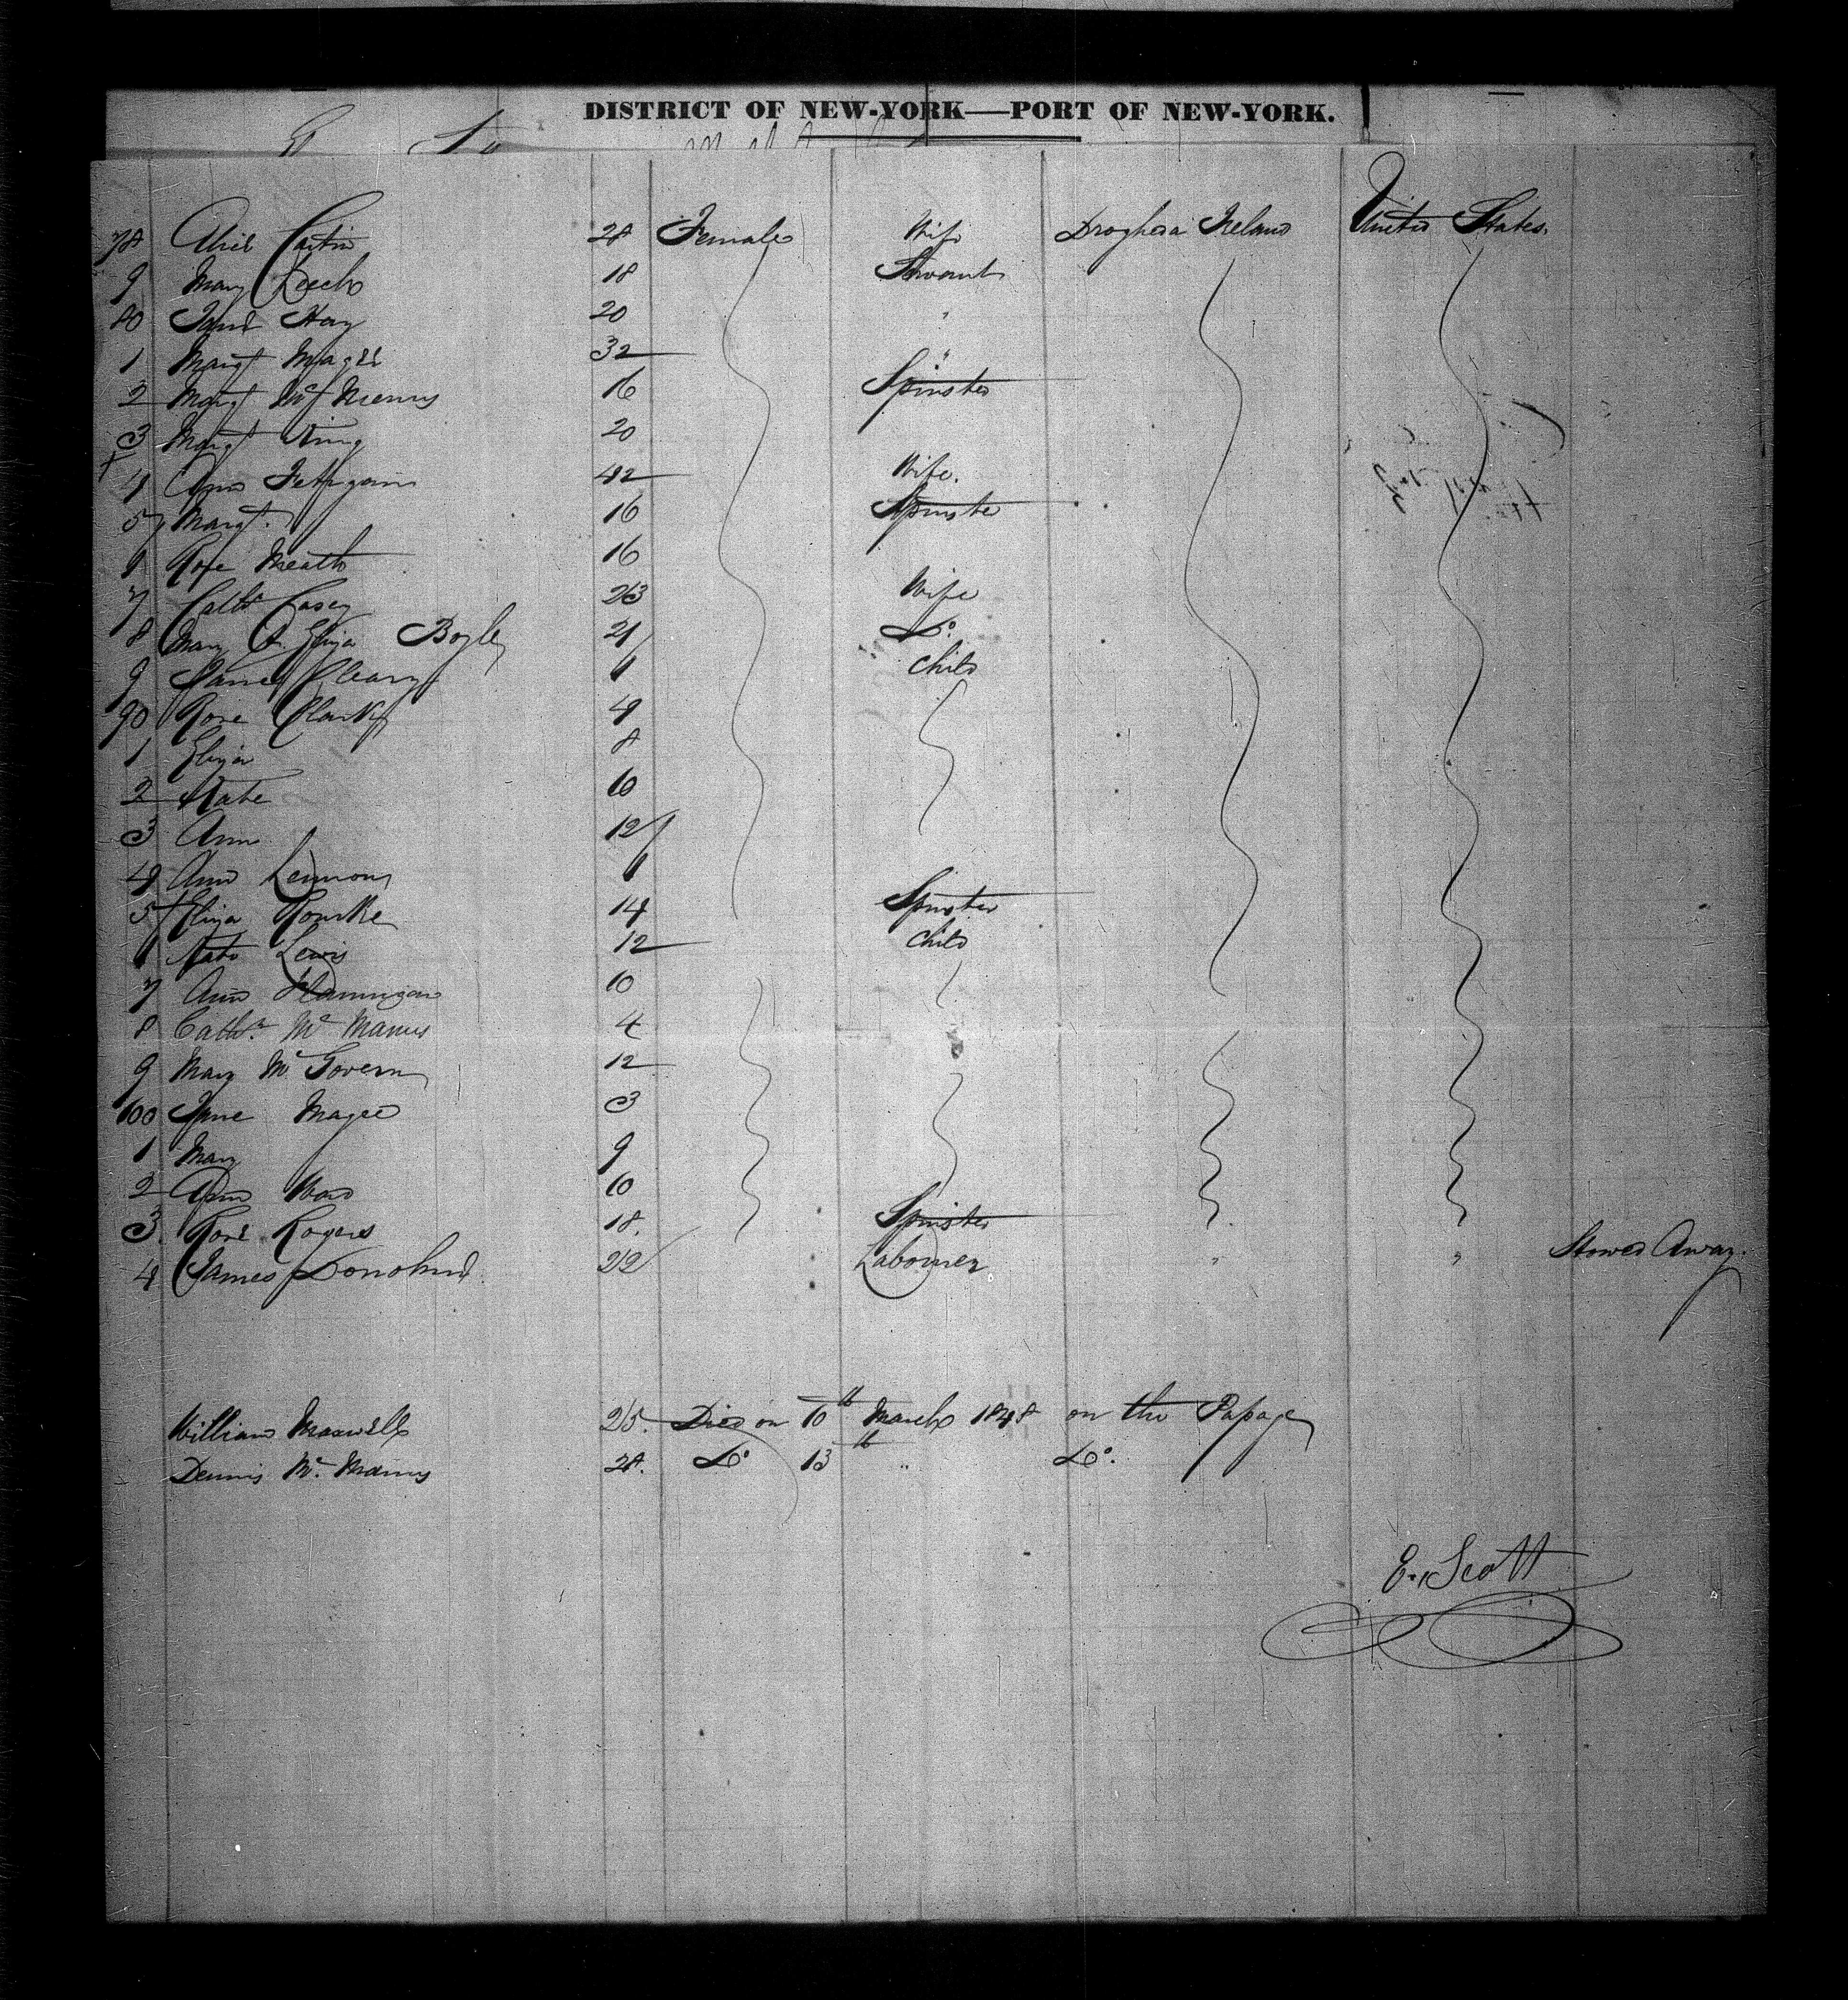 DISTRICT OF NEW-YORK—PORT OF NEW-YORK.
78 Alice 28 Female Wife Drogheda Ireland United States.
9 Mary Leech 18 Servant
80 Jane Hoy 20 "
1 Margt Magee 32 "
2 Margt McManus 16 Spinster
3 Margt King 20
4 Ann Fettigan 42 Wife.
5 Margt. 16 Spinster
6 Rose Meath 16
7 Cathe Casey 23 Wife
8 Mary & Eliza Boyle 21 Do.
9 Cleary 6 Child
90 Rose Clarke 4
1 Eliza 8
2 Kate 10
3 Ann 12
4 Ann Lennon 6
5 Eliza Rourke 14 Spinster
6 Kate Lewis 12 Child
7 Ann Flannigan 10
8 Cathe. Mc Manus 4
9 Mary McGovern 12
100 Jane Magee 3
1 Mary 9
2 Ann Ward 10
3. Rose Rogers 18. Spinster
4 James Donohue 22 Labourer " " Stowed Away.
William Maxwell 25. Died on 10th March 1848 on the Passage
Dennis Mc. Manus 28. Do 13th " Do.
E. Scott